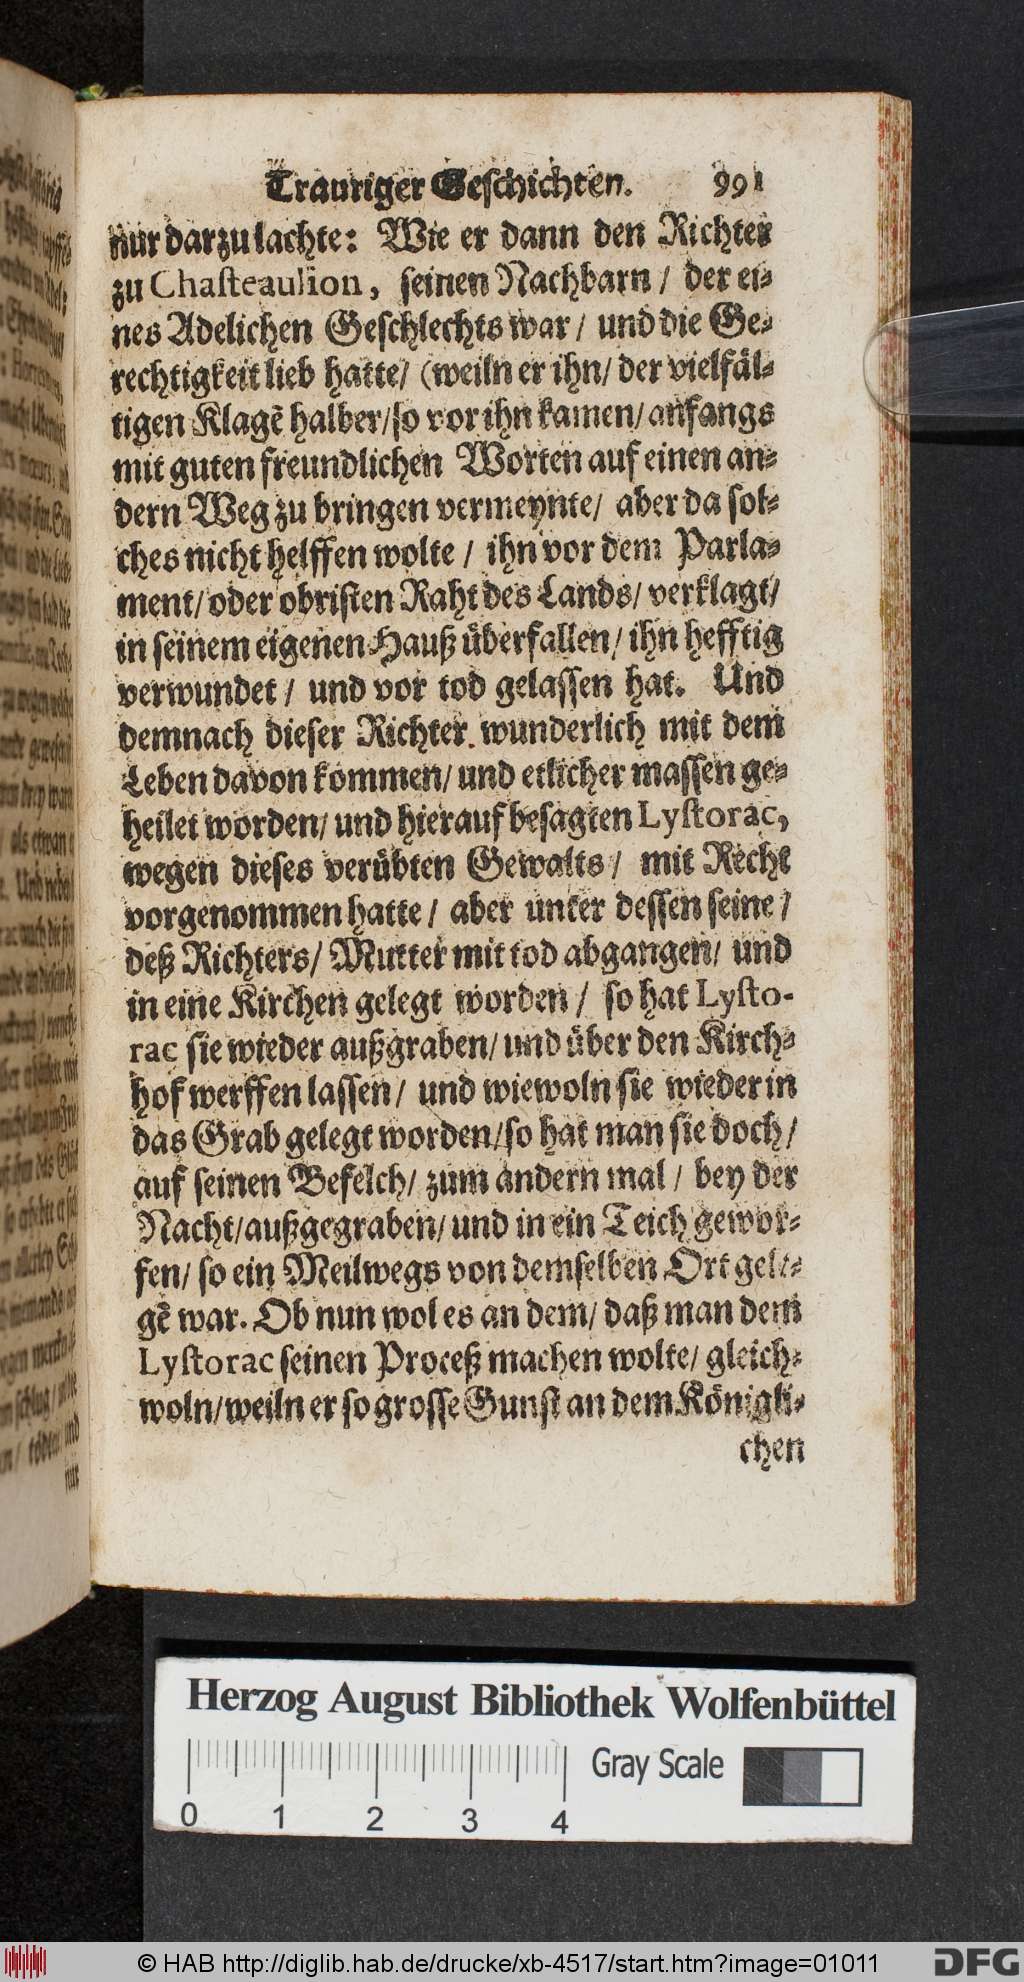 Trauriger Geschichten. 991
nur darzu lachte: Wie er dann den Richter
zu Chasteaulion, seinen Nachbarn / der ei-
nes Adelichen Geschlechts war / und die Ge-
rechtigkeit lieb hatte / (weiln er ihn / der vielfäl-
tigen Klagẽ halber / so vor ihn kamen / anfangs
mit guten freundlichen Worten auf einen an-
dern Weg zu bringen vermeynte / aber da sol-
ches nicht helffen wolte / ihn vor dem Parla-
ment / oder obristen Raht des Lands / verklagt /
in seinem eigenen Hauß überfallen / ihn hefftig
verwundet / und vor tod gelassen hat. Und
demnach dieser Richter wunderlich mit dem
Leben davon kommen / und etlicher massen ge-
heilet worden / und hierauf besagten Lystorac,
wegen dieses verübten Gewalts / mit Recht
vorgenommen hatte / aber unter dessen seine /
deß Richters / Mutter mit tod abgangen / und
in eine Kirchen gelegt worden / so hat Lysto-
rac sie wieder außgraben / und über den Kirch-
hof werffen lassen / und wiewoln sie wieder in
das Grab gelegt worden / so hat man sie doch /
auf seinen Befelch / zum andern mal / bey der
Nacht / außgegraben / und in ein Teich gewor-
fen / so ein Meilwegs von demselben Ort gele-
gẽ war. Ob nun wol es an dem / daß man dem
Lystorac seinen Proceß machen wolte / gleich-
woln / weiln er so grosse Gunst an dem Königli-
chen
Herzog August Bibliothek Wolfenbüttel
Gray Scale
0 1 2 3 4
© HAB http://diglib.hab.de/drucke/xb-4517/start.htm?image=01011
DFG